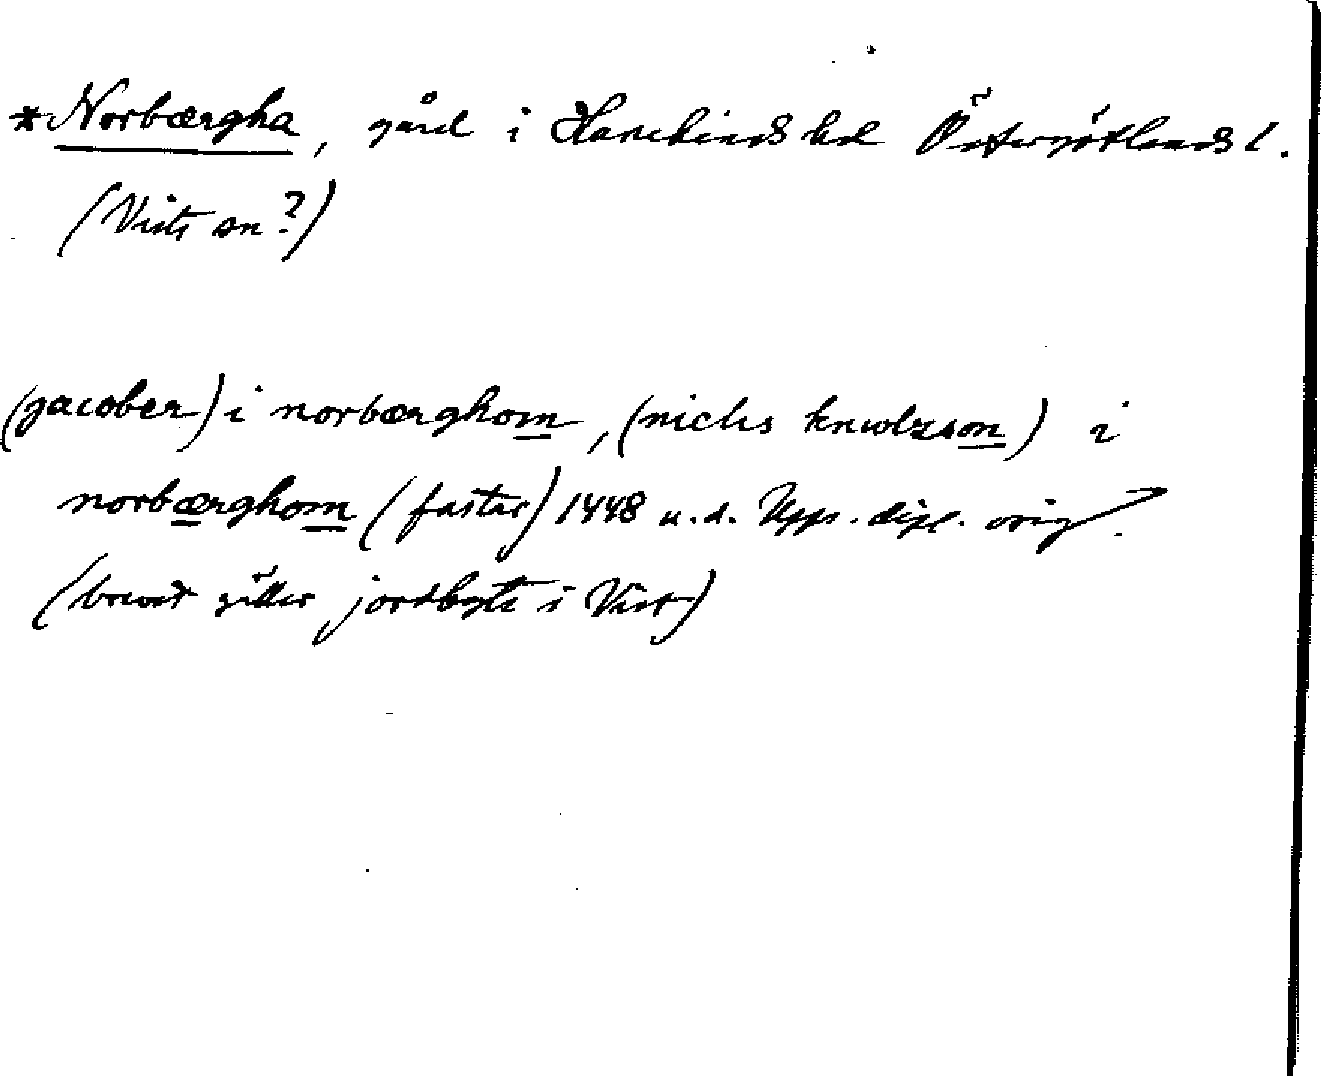 *Norbærgha, gård i Hanekinds hd Östergötlands l.
(Vists sn?)
(jacober) i norbærghom, (niclis knwtzson) i
norbærghom (fastar) 1448 u.d. Upps. dipl. orig.
(brevet gäller jordbyte i Vist)